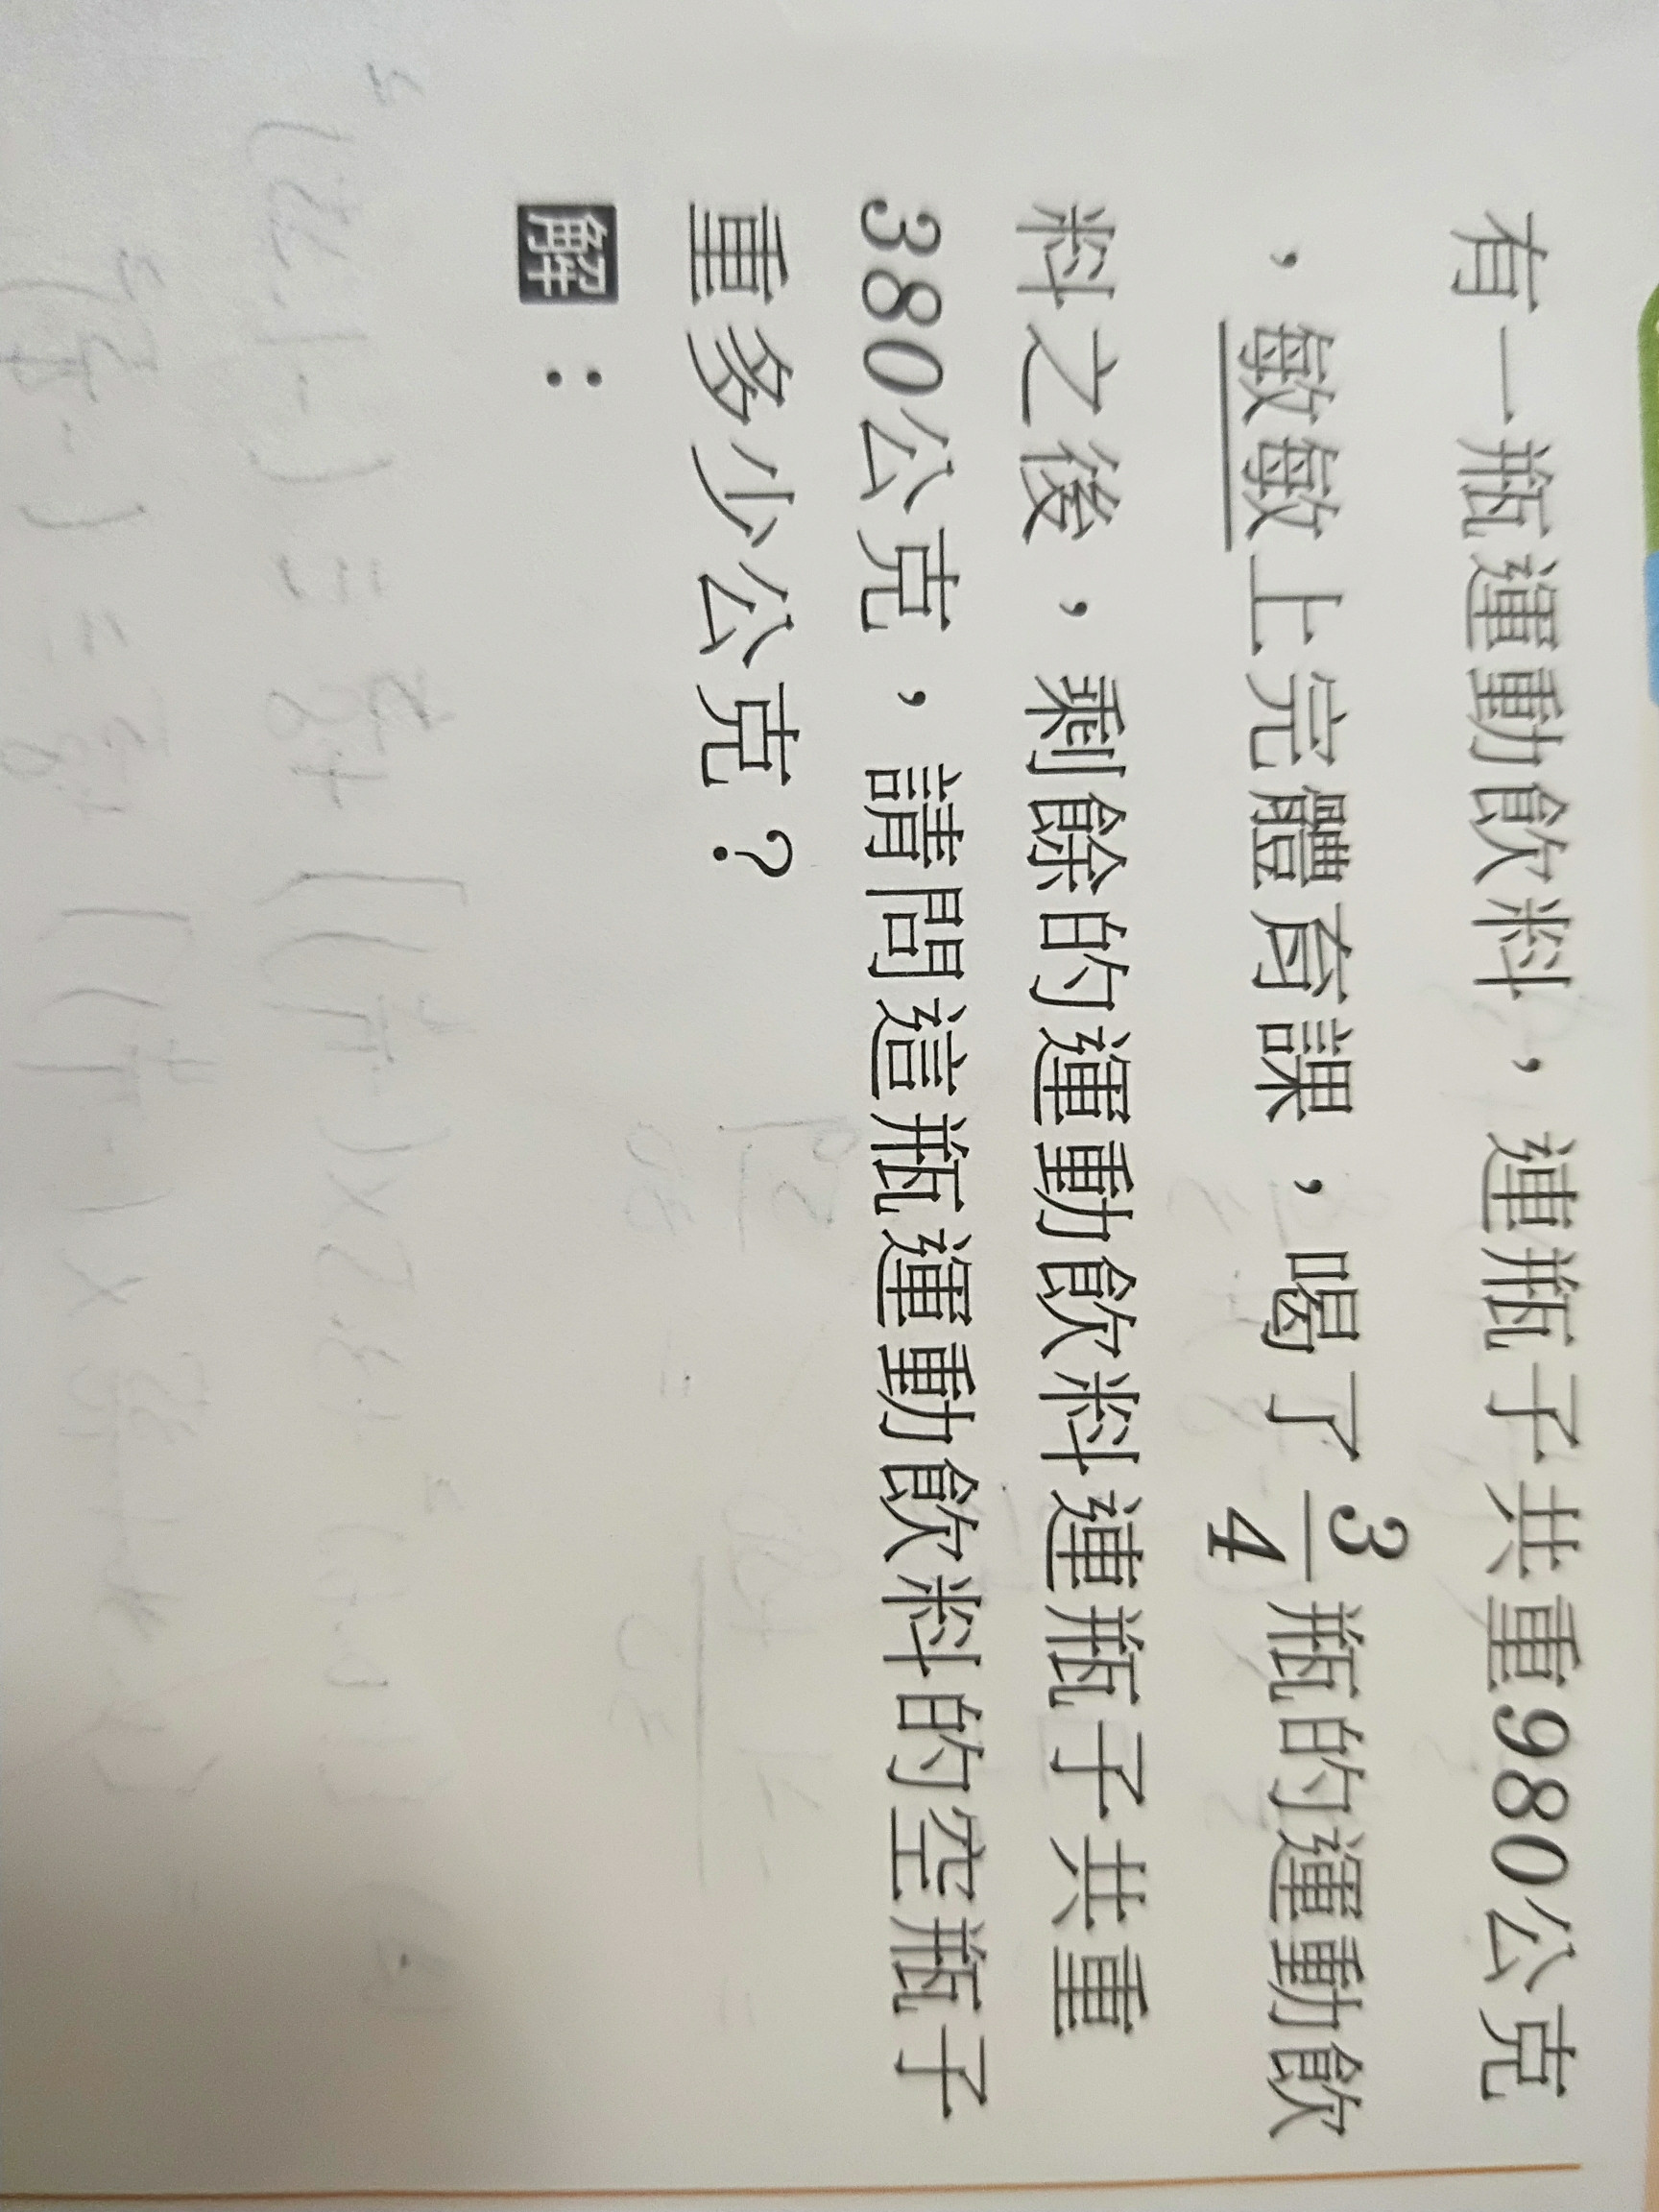 有一瓶運動飲料，連瓶子共重980公克
，敏敏上完體育課，喝了3/4瓶的運動飲
料之後，剩餘的運動飲料連瓶子共重
380公克，請問這瓶運動飲料的空瓶子
重多少公克？
解：